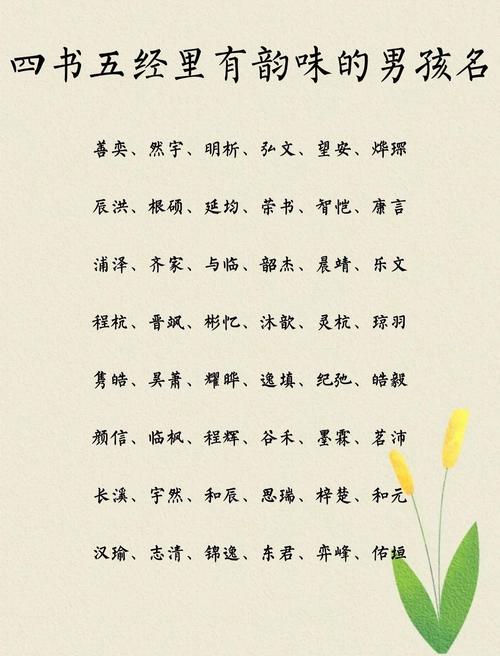 四书五经里有韵味的男孩名
善奕、然宇、明析、弘文、望安、烨琛
辰洪、根硕、延均、荣书、智恺、康言
浦泽、齐家、与临、韶杰、晨靖、乐文
程杭、晋飒、彬忆、沐歆、灵杭、琼羽
隽皓、吴萧、耀晔、逸填、纪弛、皓毅
颜信、临枫、程辉、谷禾、墨霖、茗沛
长溪、宇然、和辰、思瑞、梓楚、和元
汉瑜、志清、锦逸、东君、弈峰、佑垣